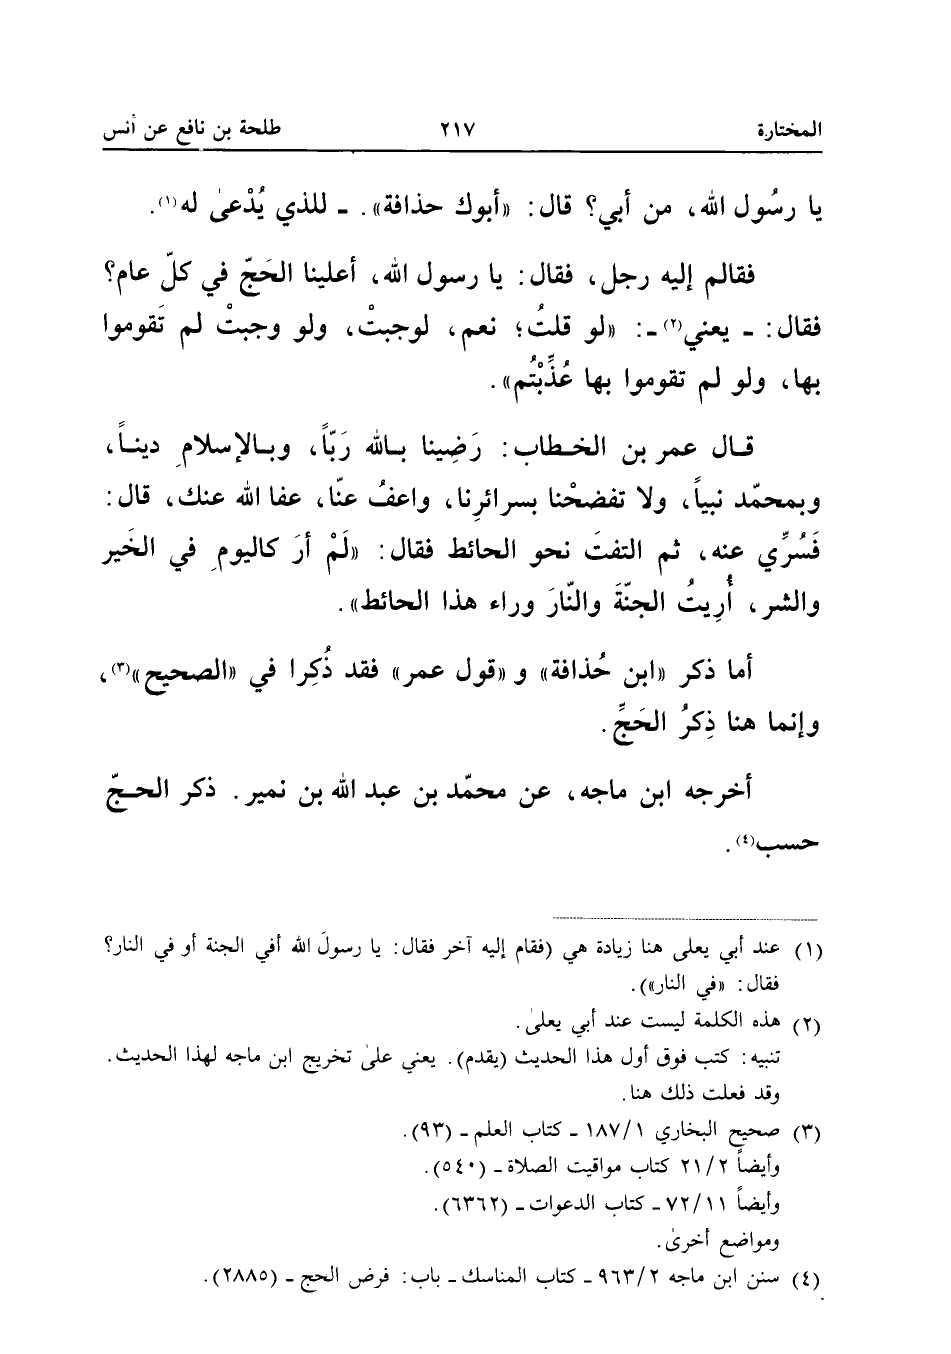 المختارة ٢١٧ طلحة بن نافع عن أنس
يا رسُول الله، من أبي؟ قال: «أبوك حذافة». ـ للذي يُدْعىٰ له(١).
فقالم إليه رجل، فقال: يا رسول الله، أعلينا الحَجّ في كلّ عام؟
فقال: ـ يعني(٢) ـ: «لو قلتُ؛ نعم، لوجبتْ، ولو وجبتْ لم تَقوموا
بها، ولو لم تقوموا بها عُذِّبْتُم».
قـال عمر بن الخـطاب: رَضِينا بـالله رَبّاً، وبـالإسلامِ دينـاً،
وبمحمّد نبياً، ولا تفضحْنا بسرائرِنا، واعفُ عنّا، عفا الله عنك، قال:
فَسُرِّي عنه، ثم التفتَ نحو الحائط فقال: «لَمْ أرَ كاليومِ في الخَير
والشر، أُرِيتُ الجنّةَ والنّارَ وراء هذا الحائط».
أما ذكر «ابن حُذافة» و «قول عمر» فقد ذُكِرا في «الصحيح»(٣)،
وإنما هنا ذِكرُ الحَجِّ.
أخرجه ابن ماجه، عن محمّد بن عبد الله بن نمير. ذكر الحـجّ
حسب(٤).
(١) عند أبي يعلى هنا زيادة هي (فقام إليه آخر فقال: يا رسولَ الله أفي الجنة أو في النار؟
فقال: «في النار»).
(٢) هذه الكلمة ليست عند أبي يعلىٰ.
تنبيه: كتب فوق أول هذا الحديث (يقدم). يعني علىٰ تخريج ابن ماجه لهذا الحديث.
وقد فعلت ذلك هنا.
(٣) صحيح البخاري ١/ ١٨٧ ـ كتاب العلم ـ (٩٣).
وأيضاً ٢/ ٢١ كتاب مواقيت الصلاة ـ (٥٤٠).
وأيضاً ١١/ ٧٢ ـ كتاب الدعوات ـ (٦٣٦٢).
ومواضع أخرىٰ.
(٤) سنن ابن ماجه ٢/ ٩٦٣ ـ كتاب المناسك ـ باب: فرض الحج ـ (٢٨٨٥).